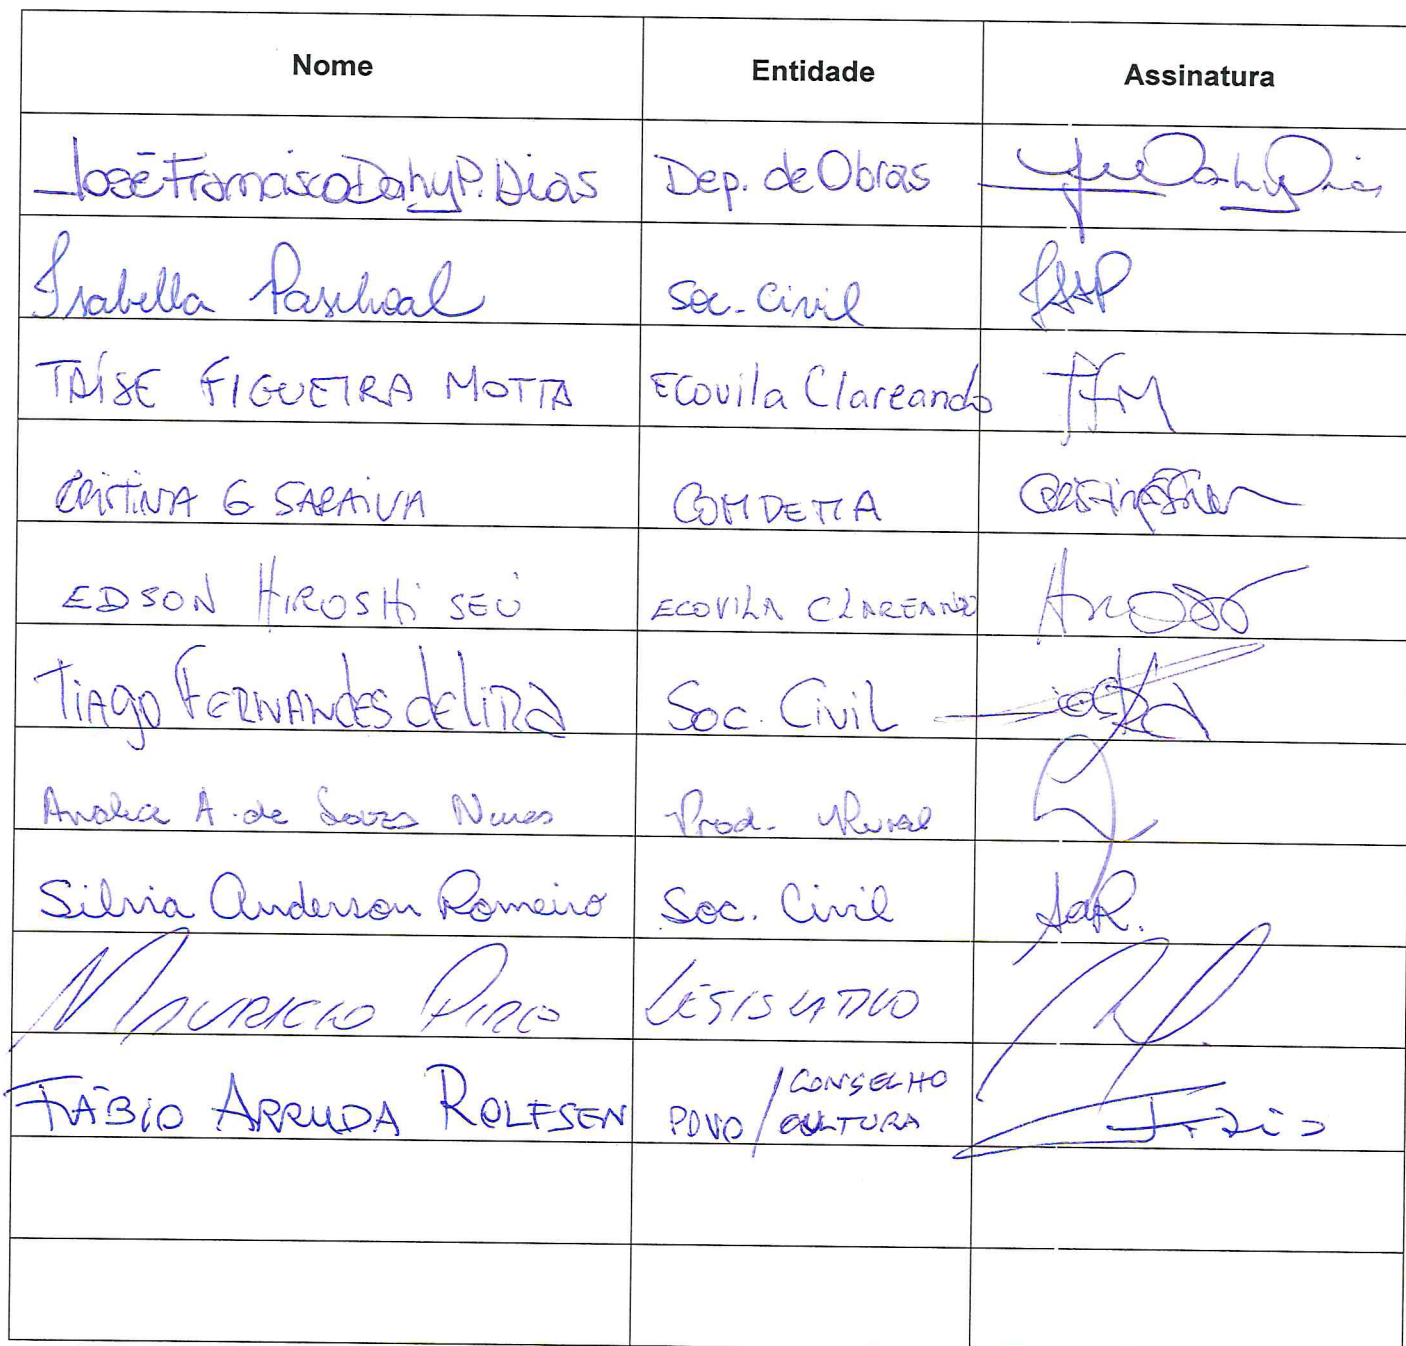 Nome Entidade Assinatura
José Francisco Dahy P. Dias Dep. de Obras
Isabella Paschoal Soc. Civil
TAÍSE FIGUEIRA MOTTA Ecovila Clareando TFM
CRISTINA G SARAIVA COMDEMA
EDSON HIROSHI SEÓ ECOVILA CLAREANDO
TIAGO FERNANDES DE LIRA Soc. Civil
A. de Souza Nunes Prod. Rural
Silvia Anderson Romeiro Soc. Civil SAR.
MAURICIO PIRO LEGISLATIVO
FÁBIO ARRUDA ROLFSEN POVO / CONSELHO CULTURA Fábio